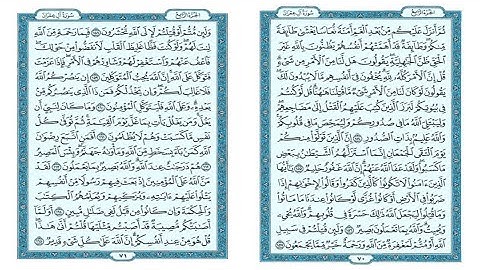 الجزء الرابع سورة آل عمران
ثُمَّ أَنزَلَ عَلَيْكُم مِّنۢ بَعْدِ ٱلْغَمِّ أَمَنَةً نُّعَاسًا يَغْشَىٰ طَآئِفَةً
مِّنكُمْ وَطَآئِفَةٌ قَدْ أَهَمَّتْهُمْ أَنفُسُهُمْ يَظُنُّونَ بِٱللَّهِ غَيْرَ
ٱلْحَقِّ ظَنَّ ٱلْجَٰهِلِيَّةِ يَقُولُونَ هَل لَّنَا مِنَ ٱلْأَمْرِ مِن شَىْءٍ
قُلْ إِنَّ ٱلْأَمْرَ كُلَّهُۥ لِلَّهِ يُخْفُونَ فِىٓ أَنفُسِهِم مَّا لَا يُبْدُونَ لَكَ
يَقُولُونَ لَوْ كَانَ لَنَا مِنَ ٱلْأَمْرِ شَىْءٌ مَّا قُتِلْنَا هَٰهُنَا قُل لَّوْ كُنتُمْ
فِى بُيُوتِكُمْ لَبَرَزَ ٱلَّذِينَ كُتِبَ عَلَيْهِمُ ٱلْقَتْلُ إِلَىٰ مَضَاجِعِهِمْ
وَلِيَبْتَلِىَ ٱللَّهُ مَا فِى صُدُورِكُمْ وَلِيُمَحِّصَ مَا فِى قُلُوبِكُمْ
وَٱللَّهُ عَلِيمٌۢ بِذَاتِ ٱلصُّدُورِ ١٥٤ إِنَّ ٱلَّذِينَ تَوَلَّوْا۟ مِنكُمْ
يَوْمَ ٱلْتَقَى ٱلْجَمْعَانِ إِنَّمَا ٱسْتَزَلَّهُمُ ٱلشَّيْطَٰنُ بِبَعْضِ
مَا كَسَبُوا۟ وَلَقَدْ عَفَا ٱللَّهُ عَنْهُمْ إِنَّ ٱللَّهَ غَفُورٌ حَلِيمٌ ١٥٥ يَٰٓأَيُّهَا
ٱلَّذِينَ ءَامَنُوا۟ لَا تَكُونُوا۟ كَٱلَّذِينَ كَفَرُوا۟ وَقَالُوا۟ لِإِخْوَٰنِهِمْ إِذَا
ضَرَبُوا۟ فِى ٱلْأَرْضِ أَوْ كَانُوا۟ غُزًّى لَّوْ كَانُوا۟ عِندَنَا مَا مَاتُوا۟
وَمَا قُتِلُوا۟ لِيَجْعَلَ ٱللَّهُ ذَٰلِكَ حَسْرَةً فِى قُلُوبِهِمْ وَٱللَّهُ يُحْىِۦ
وَيُمِيتُ وَٱللَّهُ بِمَا تَعْمَلُونَ بَصِيرٌ ١٥٦ وَلَئِن قُتِلْتُمْ فِى سَبِيلِ
ٱللَّهِ أَوْ مُتُّمْ لَمَغْفِرَةٌ مِّنَ ٱللَّهِ وَرَحْمَةٌ خَيْرٌ مِّمَّا يَجْمَعُونَ ١٥٧
٧٠
الجزء الرابع سورة آل عمران
وَلَئِن مُّتُّمْ أَوْ قُتِلْتُمْ لَإِلَى ٱللَّهِ تُحْشَرُونَ ١٥٨ فَبِمَا رَحْمَةٍ مِّنَ
ٱللَّهِ لِنتَ لَهُمْ وَلَوْ كُنتَ فَظًّا غَلِيظَ ٱلْقَلْبِ لَٱنفَضُّوا۟ مِنْ حَوْلِكَ
فَٱعْفُ عَنْهُمْ وَٱسْتَغْفِرْ لَهُمْ وَشَاوِرْهُمْ فِى ٱلْأَمْرِ فَإِذَا عَزَمْتَ
فَتَوَكَّلْ عَلَى ٱللَّهِ إِنَّ ٱللَّهَ يُحِبُّ ٱلْمُتَوَكِّلِينَ ١٥٩ إِن يَنصُرْكُمُ ٱللَّهُ
فَلَا غَالِبَ لَكُمْ وَإِن يَخْذُلْكُمْ فَمَن ذَا ٱلَّذِى يَنصُرُكُم مِّنۢ
بَعْدِهِۦ وَعَلَى ٱللَّهِ فَلْيَتَوَكَّلِ ٱلْمُؤْمِنُونَ ١٦٠ وَمَا كَانَ لِنَبِىٍّ أَن
يَغُلَّ وَمَن يَغْلُلْ يَأْتِ بِمَا غَلَّ يَوْمَ ٱلْقِيَٰمَةِ ثُمَّ تُوَفَّىٰ كُلُّ
نَفْسٍ مَّا كَسَبَتْ وَهُمْ لَا يُظْلَمُونَ ١٦١ أَفَمَنِ ٱتَّبَعَ رِضْوَٰنَ
ٱللَّهِ كَمَنۢ بَآءَ بِسَخَطٍ مِّنَ ٱللَّهِ وَمَأْوَىٰهُ جَهَنَّمُ وَبِئْسَ ٱلْمَصِيرُ
١٦٢ هُمْ دَرَجَٰتٌ عِندَ ٱللَّهِ وَٱللَّهُ بَصِيرٌۢ بِمَا يَعْمَلُونَ ١٦٣ لَقَدْ
مَنَّ ٱللَّهُ عَلَى ٱلْمُؤْمِنِينَ إِذْ بَعَثَ فِيهِمْ رَسُولًا مِّنْ أَنفُسِهِمْ
يَتْلُوا۟ عَلَيْهِمْ ءَايَٰتِهِۦ وَيُزَكِّيهِمْ وَيُعَلِّمُهُمُ ٱلْكِتَٰبَ
وَٱلْحِكْمَةَ وَإِن كَانُوا۟ مِن قَبْلُ لَفِى ضَلَٰلٍ مُّبِينٍ ١٦٤ أَوَلَمَّآ
أَصَٰبَتْكُم مُّصِيبَةٌ قَدْ أَصَبْتُم مِّثْلَيْهَا قُلْتُمْ أَنَّىٰ هَٰذَا
قُلْ هُوَ مِنْ عِندِ أَنفُسِكُمْ إِنَّ ٱللَّهَ عَلَىٰ كُلِّ شَىْءٍ قَدِيرٌ ١٦٥
٧١